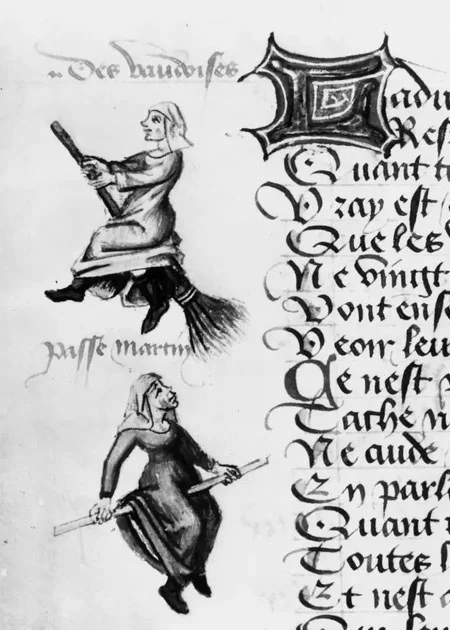 Des vaudoises
passe martin
Quant
Vray est
Que les
Ne vingt
Vont ense
Veoir leu
Ce nest
Tache n
Ne aude
En parl
Quant
Toutes l
Et nest